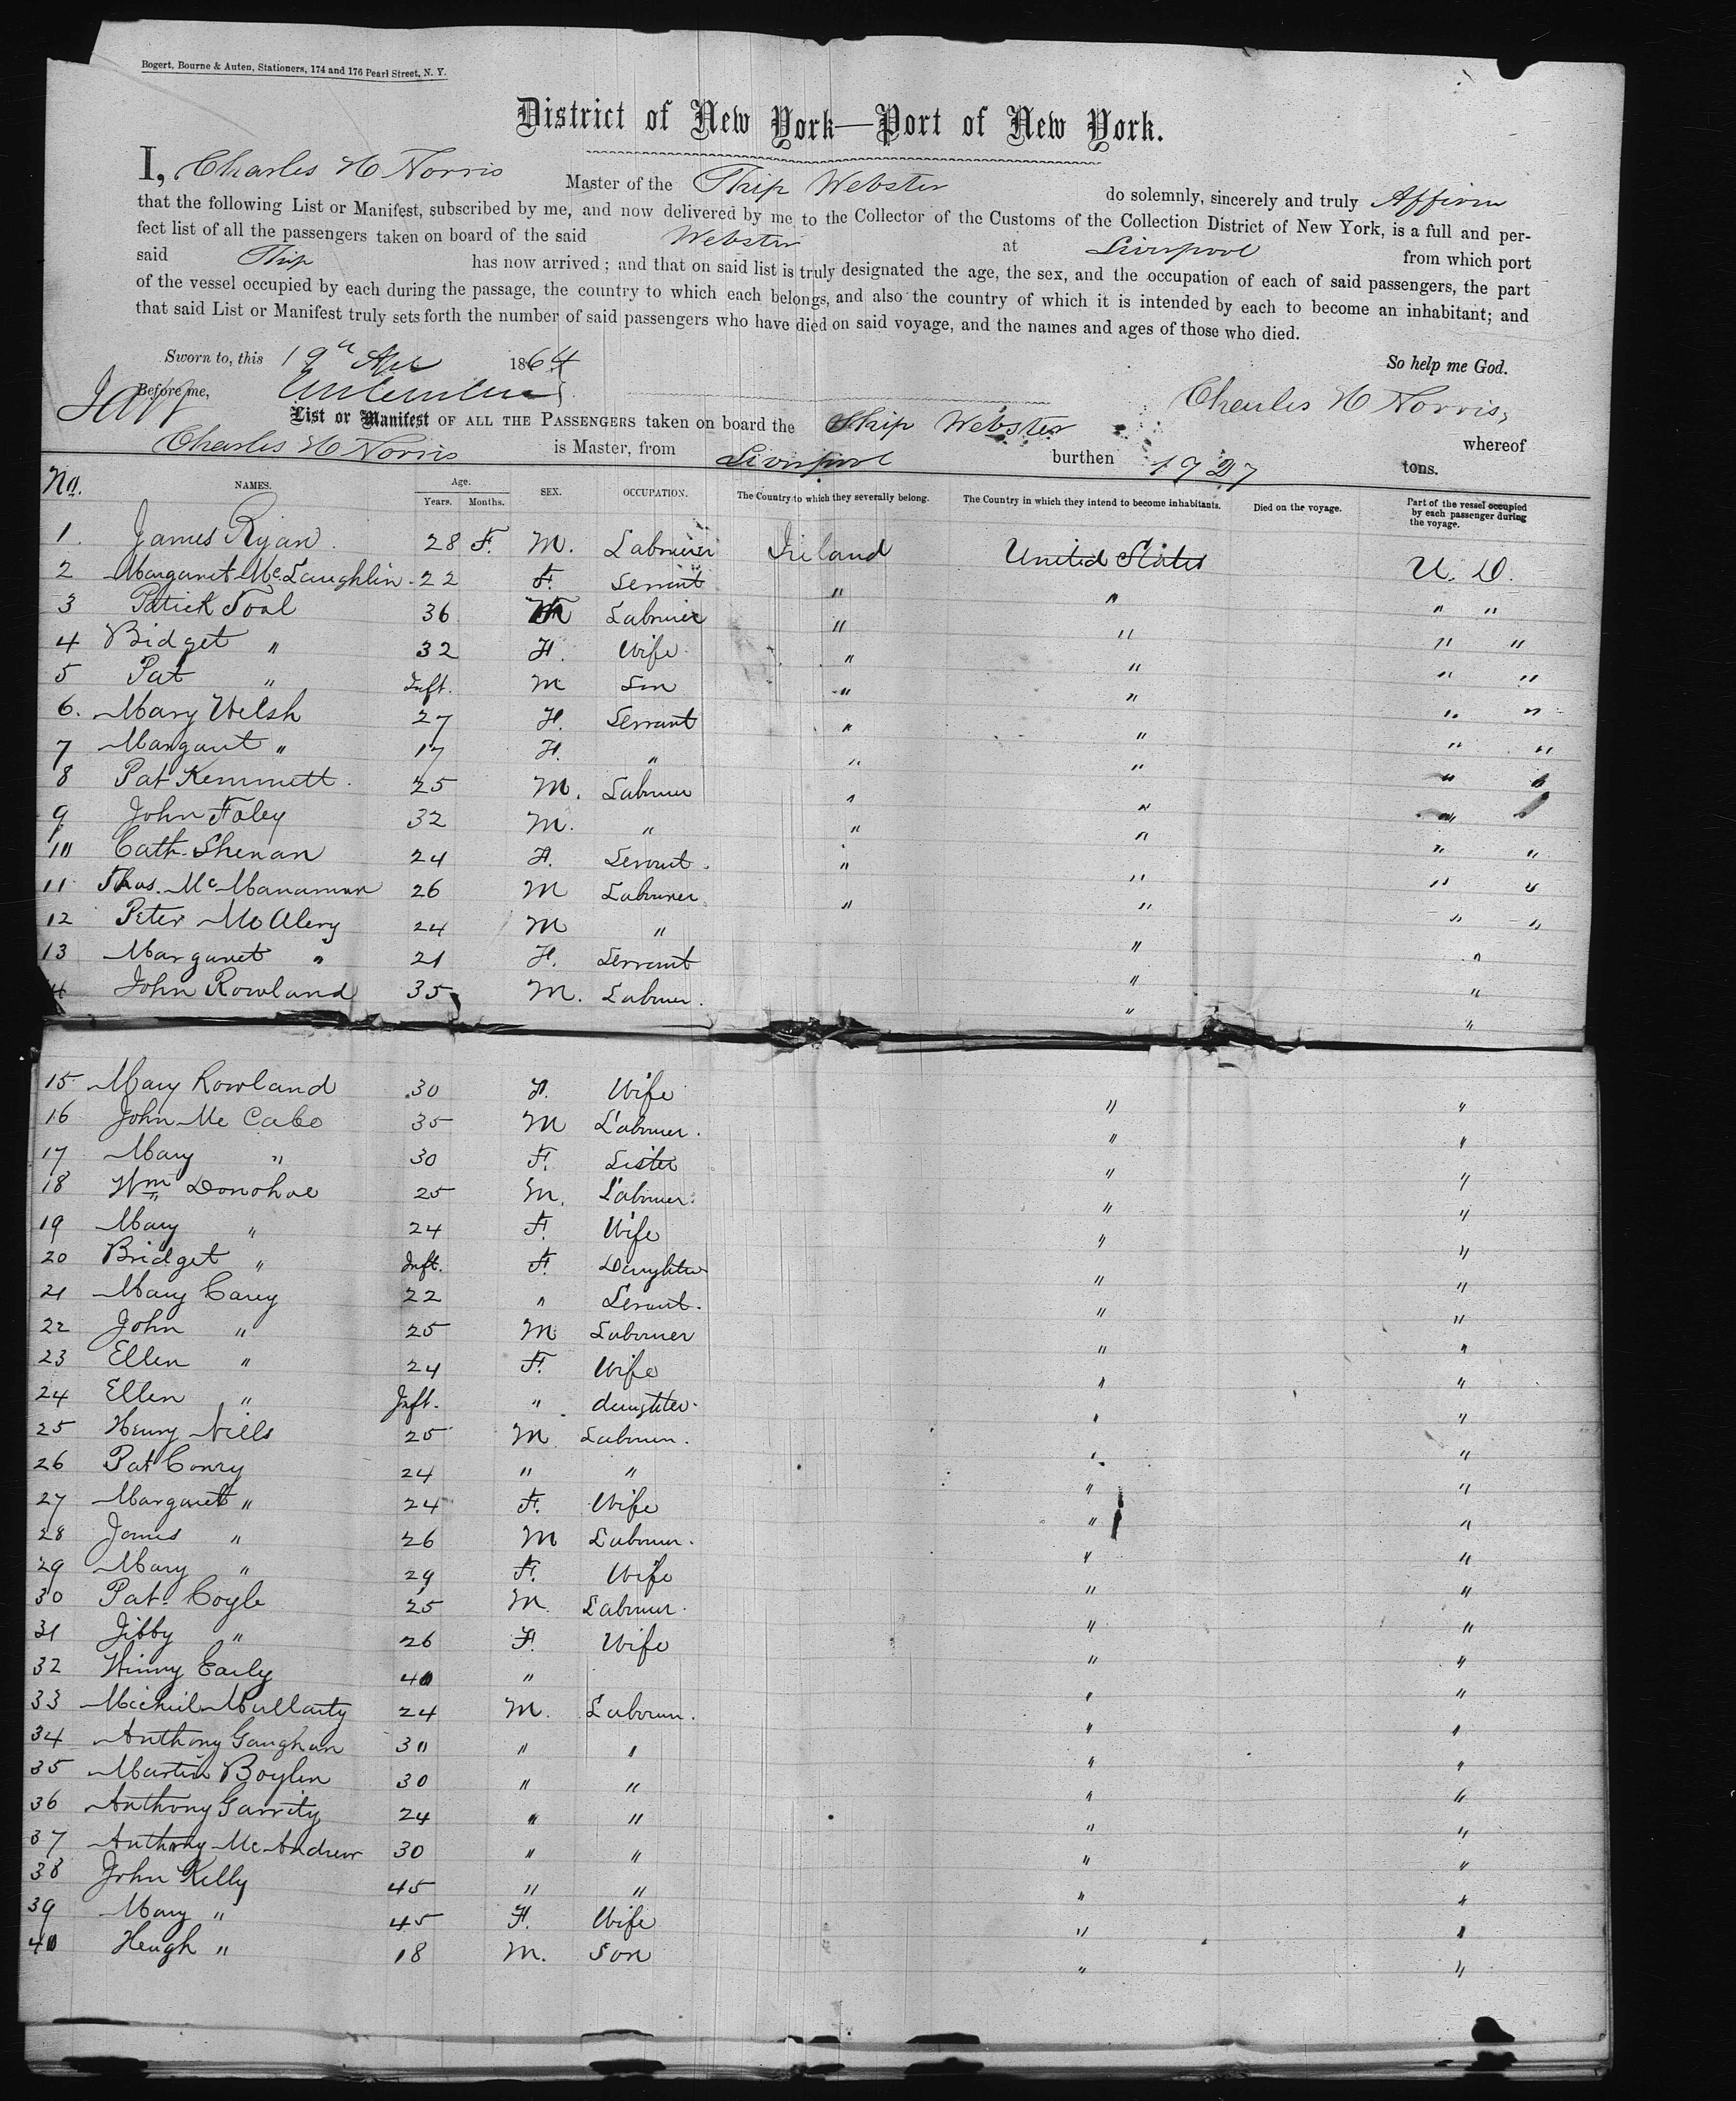 Bogert, Bourne & Auten, Stationers, 174 and 176 Pearl Street, N. Y.
District of New York—Port of New York.
I, Charles H Norris Master of the Ship Webster do solemnly, sincerely and truly Affirm
that the following List or Manifest, subscribed by me, and now delivered by me to the Collector of the Customs of the Collection District of New York, is a full and per-
fect list of all the passengers taken on board of the said Webster at Liverpool from which port
said Ship has now arrived; and that on said list is truly designated the age, the sex, and the occupation of each of said passengers, the part
of the vessel occupied by each during the passage, the country to which each belongs, and also the country of which it is intended by each to become an inhabitant; and
that said List or Manifest truly sets forth the number of said passengers who have died on said voyage, and the names and ages of those who died.
Sworn to, this 19th Apl 1864 So help me God.
Before me, Charles H Norris,
List or Manifest OF ALL THE PASSENGERS taken on board the Ship Webster whereof
Charles H Norris is Master, from Liverpool burthen 1927 tons.
No. NAMES. Age. Years. Months. SEX. OCCUPATION. The Country to which they severally belong. The Country in which they intend to become inhabitants. Died on the voyage. Part of the vessel occupied by each passenger during the voyage.
1. James Ryan. 28 F. M. Labourer Ireland United States U. D.
2 Margaret McLaughlin 22 F. Servant " " " "
3 Patick Toal 36 M Labourer " " " "
4 Bidget " 32 F. Wife " " " "
5 Pat " Inft. M Son " " " "
6. Mary Welsh 27 F. Servant " " " "
7 Margaret " 17 F. " " " " "
8 Pat Kemmett. 25 M. Labourer " " " "
9 John Foley 32 M. " " " " "
10 Cath. Shenan 24 F. Servant. " " " "
11 Thos. McManamun 26 M Labourer " " " "
12 Peter McAlery 24 M " " "
13 Margaret " 21 F. Servant " "
14 John Rowland 35 M. Labourer. " "
15 Mary Rowland 30 F. Wife " "
16 John McCabe 35 M Labourer. " "
17 Mary " 30 F. Sister " "
18 Wm Donohoe 25 M. Labourer. " "
19 Mary " 24 F. Wife " "
20 Bridget " Inft. F. Daughter " "
21 Mary Carey 22 " Servant. " "
22 John " 25 M Labourer " "
23 Ellen " 24 F. Wife " "
24 Ellen " Inft. " daughter. " "
25 Henry Niells 25 M Labourer. " "
26 Pat Conry 24 " " " "
27 Margaret " 24 F. Wife " "
28 James " 26 M Labourer. " "
29 Mary " 29 F. Wife " "
30 Pat. Coyle 25 M. Labourer. " "
31 Jibby " 26 F. Wife " "
32 Winny Early 40 " " "
33 Michiel Mullarty 24 M. Labourer. " "
34 Anthony Gaughan 30 " " " "
35 Martin Boylen 30 " " " "
36 Anthony Garrity 24 " " " "
37 Anthony McAndrew 30 " " " "
38 John Kelly 45 " " " "
39 Mary " 45 F. Wife " "
40 Heugh " 18 M. Son " "